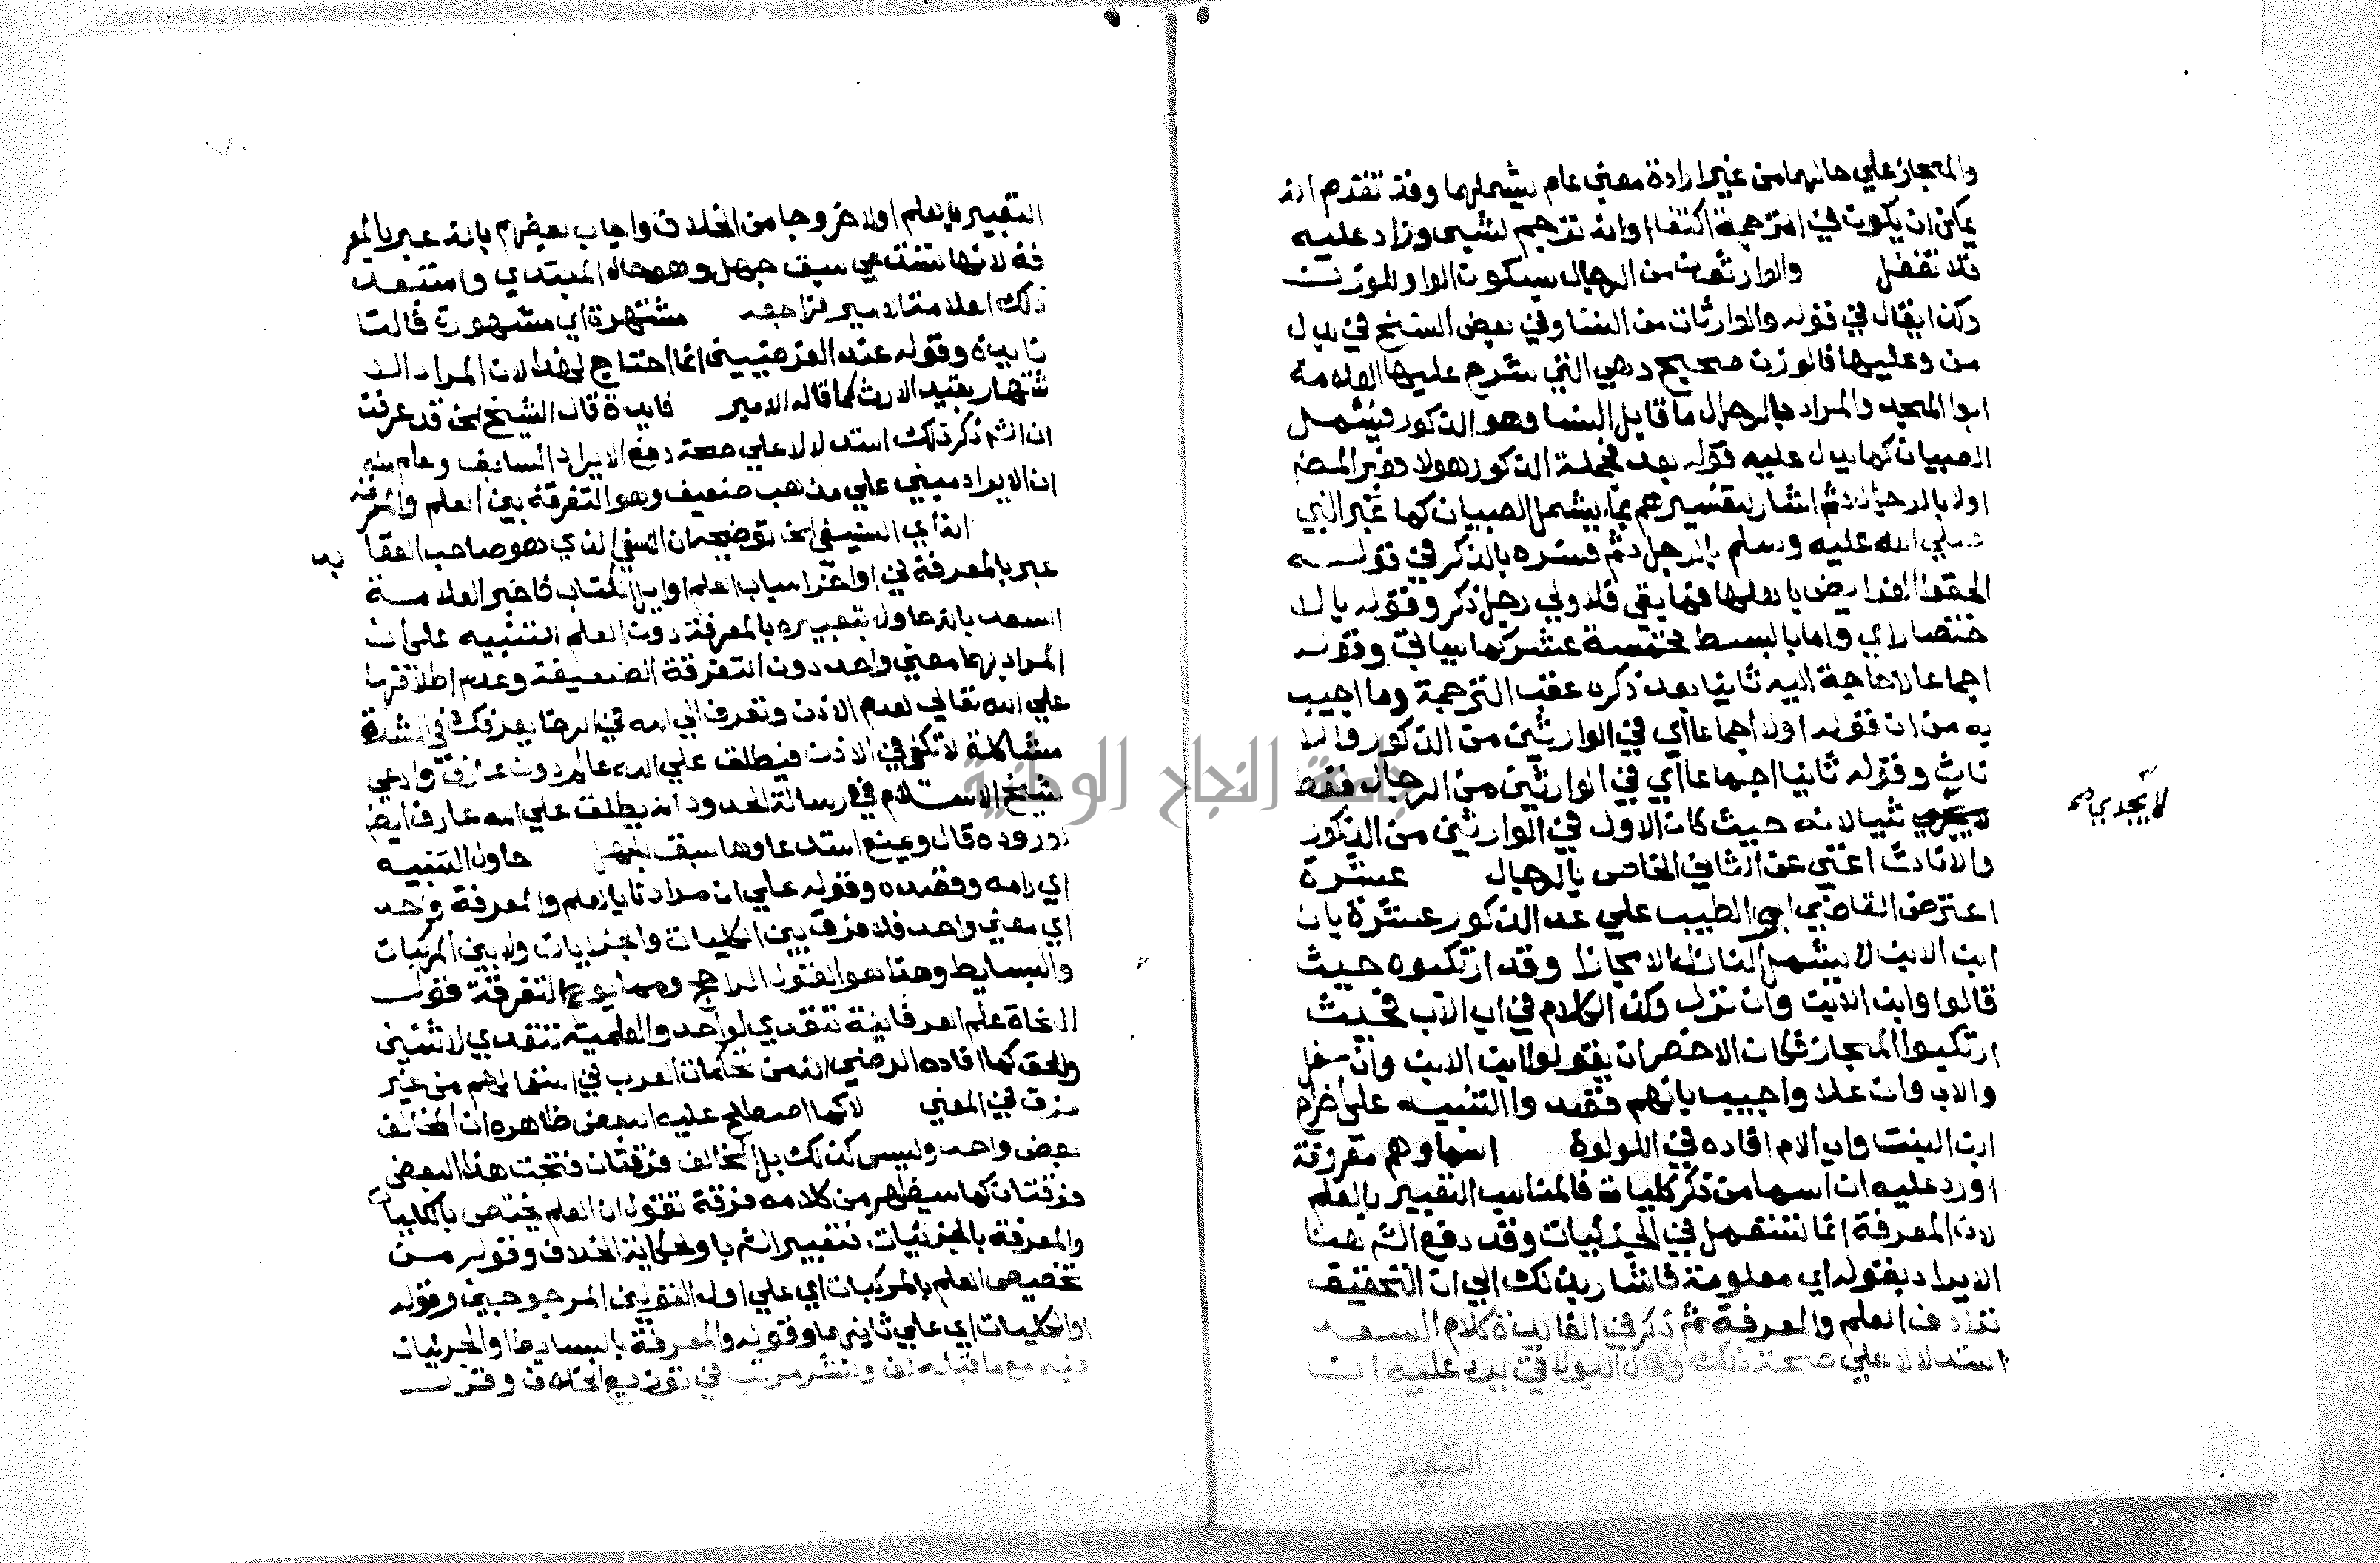 والمتجاز علي حالهما من غير ارادة معني عام يشملهما وقد تقدم انه
يمكن ان يكون في الترجمة اكتفا او انه ترجم لشيي وزاد عليه
فلا تغفل والوارثون من الرجال بسكون الواو للوزن
وكذا يقال في قوله والوارثات من النسا وفي بعض النسخ في بدل
من وعليها فالوزن صحيح وهي التي شرح عليها العلامة
ابوا المجد والمراد بالرجال ما قابل النسا وهو الذكور فيشمل
الصبيان كما يدل عليه قوله بعد فجملة الذكور هولا فعبر المصنف
اولا بالرجال ثم اشار لتفسيرهم بما يشمل الصبيان كما عبر النبي
صلي الله عليه وسلم بالرجل ثم فسره بالذكر في قوله
الحقوا الفرايض باهلها فما بقي فلا ولي رجل ذكر وقوله بالا
ختصار اي واما بالبسط فخمسة عشر كما سياتي وقوله
اجماعا لا حاجة اليه ثانيا بعد ذكره عقب الترجمة وما اجيب
به من ان قوله اولا اجماعا اي في الوارثين من الذكور والا
ناث وقوله ثانيا اجماعا اي في الوارثين من الرجال فقط
لا يجدي صح
شيا لانه حيث كان الاول في الوارثين من الذكور
والاناث اغني عن الثاني الخاص بالرجال عشرة
اعترض القاضي ابو الطيب علي عد الذكور عشرة بان
ابن الابن لا يشمل النازل الا مجازا وقد ارتكبوه حيث
قالوا وابن الابن وان نزل وكذا الكلام في اب الاب فحيث
ارتكبوا المجاز فكان الاخصر ان يقولوا ابن الابن وان سفل
والاب وان علا واجيب بانهم قصدوا التنبيه علي اخراج
ابن البنت واب الام افاده في اللولوة اسماوهم معروفة
اورد عليه ان اسما من ذكر كليات فالمناسب التعبير بالعلم
لان المعرفة انما تستعمل في الجزئيات وقد دفع الش هذا
الايراد بقوله اي معلومة فاشار بذلك الي ان التحقيق
ترادف العلم والمعرفة ثم ذكر في الفايدة كلام السعد
استدلالا علي صحة ذلك وقال البولاقي يرد عليه ان
التعبير
التعبير بالعلم اولا خروجا من الخلاف واجاب بعضهم بانه عبر بالمعر
فة لانها تستدعي سبق جهل وهو حال المبتدي واستبعد
ذلك العلامة الامير فراجعه مشتهرة اي مشهورة قالتا
نا بيده وقوله عند الفرضيين انما احتاج لهذا لان المراد الا
شتهار بقيد الارث كما قاله الامير فايدة قال الشيخ الخ قد عرفت
ان الش ذكر ذلك استدلالا علي صحة دفع الايراد السابق وعلم منه
ان الايراد مبني علي مذهب ضعيف وهو التفرقة بين العلم والمعرفة
انه اي النسفي الخ توضيحه ان النسفي الذي هو صاحب العقا
يد
عبر بالمعرفة في اواخر اسباب العلم اوايل الكتاب فاخبر العلامة
السعد بانه حاول بتعبيره بالمعرفة دون العلم التنبيه علي ان
المراد بهما معني واحد دون التفرقة الضعيفة وعدم اطلاقها
علي الله تعالي لعدم الاذن وتعرف الي الله في الرخا يعرفك في الشدة
مشاكلة لا تكفي في الاذن فيطلق علي الله عالم دون عارف وادعي
شيخ الاسلام في رسالة الحدود انه يطلق علي الله عارف ايضا
لوروده قال ويمنع استدعاوها سبق الجهل حاول التنبيه
اي رامه وقصده وقوله علي ان مرادنا بالعلم والمعرفة واحد
اي معني واحد فلا فرق بين الكليات والجزئيات ولا بين المركبات
والبسايط وهذا هو القول الراجح ومما يوهم التفرقة قول
النحاة علم العرفانية تتعدي لواحد والعلمية تتعدي لاثنين
والحق كما افاده الرضي انه من تحكمات العرب في استعمالهم من غير
فرق في المعني لا كما اصطلح عليه البعض ظاهره ان المخالف
بعض واحد وليس كذلك بل المخالف فرقتان فتحت هذا البعض
فرقتان كما سيظهر من كلامه فرقة تقول ان العلم يختص بالكليات
والمعرفة بالجزئيات فتعبير الش باو لحكاية الخلاف وقوله من
تخصيص العلم بالمركبات اي علي اول القولين المرجوحين وقوله
او الكليات اي علي ثانيهما وقوله والمعرفة بالبسايط او الجزئيات
فيه مع ما قبله لف ونشر مرتب في توزيع الخلاف وقرب